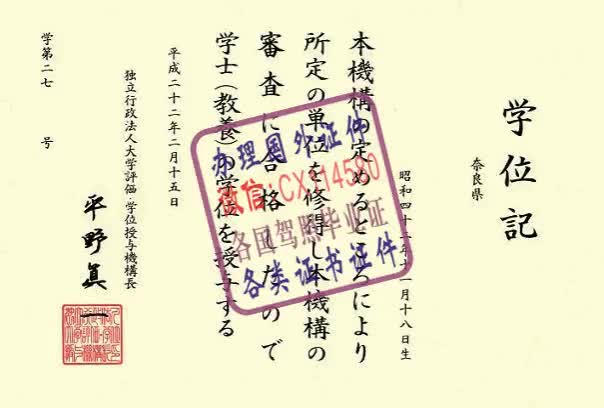 学位記
奈良県
昭和四十 月十八日生
本機構の定めるところにより
所定の単位を修得し本機構の
審査に合格したので
学士（教養）の学位を授与する
平成二十二年二月十五日
独立行政法人大学評価・学位授与機構長
平野眞一
学第二七 号
办理国外证件
微信:CX114580
各国驾照毕业证
各类证书证件